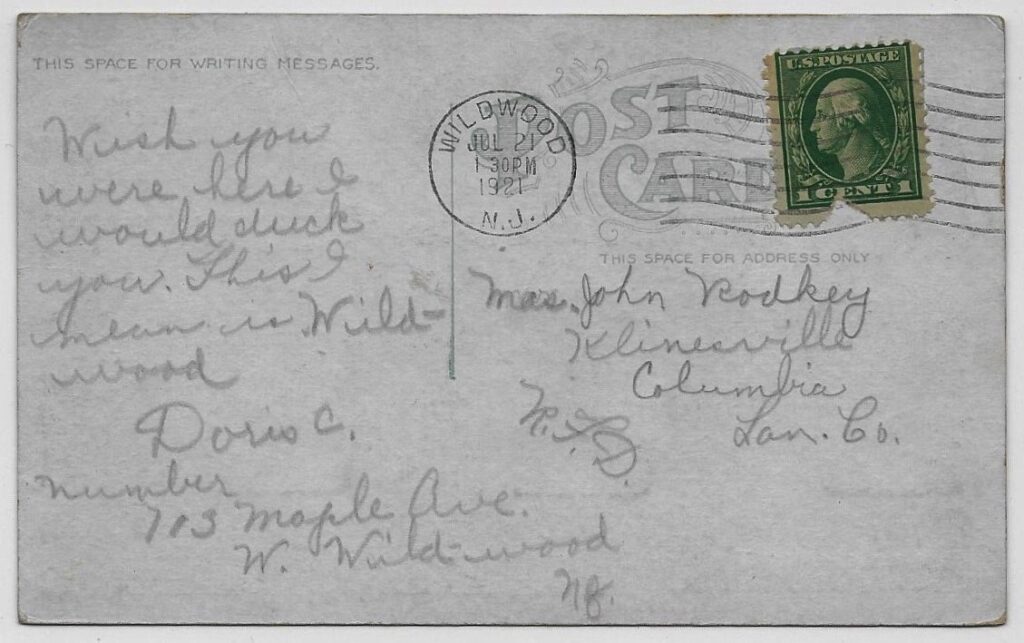 THIS SPACE FOR WRITING MESSAGES.
Wish you
were here I
would duck
you. This I
mean is Wild-
wood
Doris C.
number
703 Maple Ave.
W. Wild-wood
NJ.
POST
CARD
WILDWOOD
JUL 21
1 30PM
1921
N.J.
U.S. POSTAGE
1 CENT 1
THIS SPACE FOR ADDRESS ONLY
Mrs. John Rodkey
Klinesville
Columbia
R.F.D. Lan. Co.